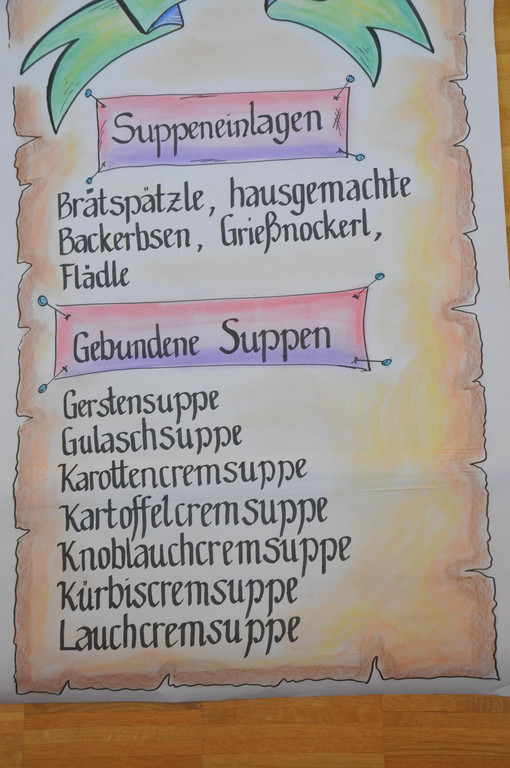 Suppeneinlagen
Brätspätzle, hausgemachte
Backerbsen, Grießnockerl,
Flädle
Gebundene Suppen
Gerstensuppe
Gulaschsuppe
Karottencremsuppe
Kartoffelcremsuppe
Knoblauchcremsuppe
Kürbiscremsuppe
Lauchcremsuppe